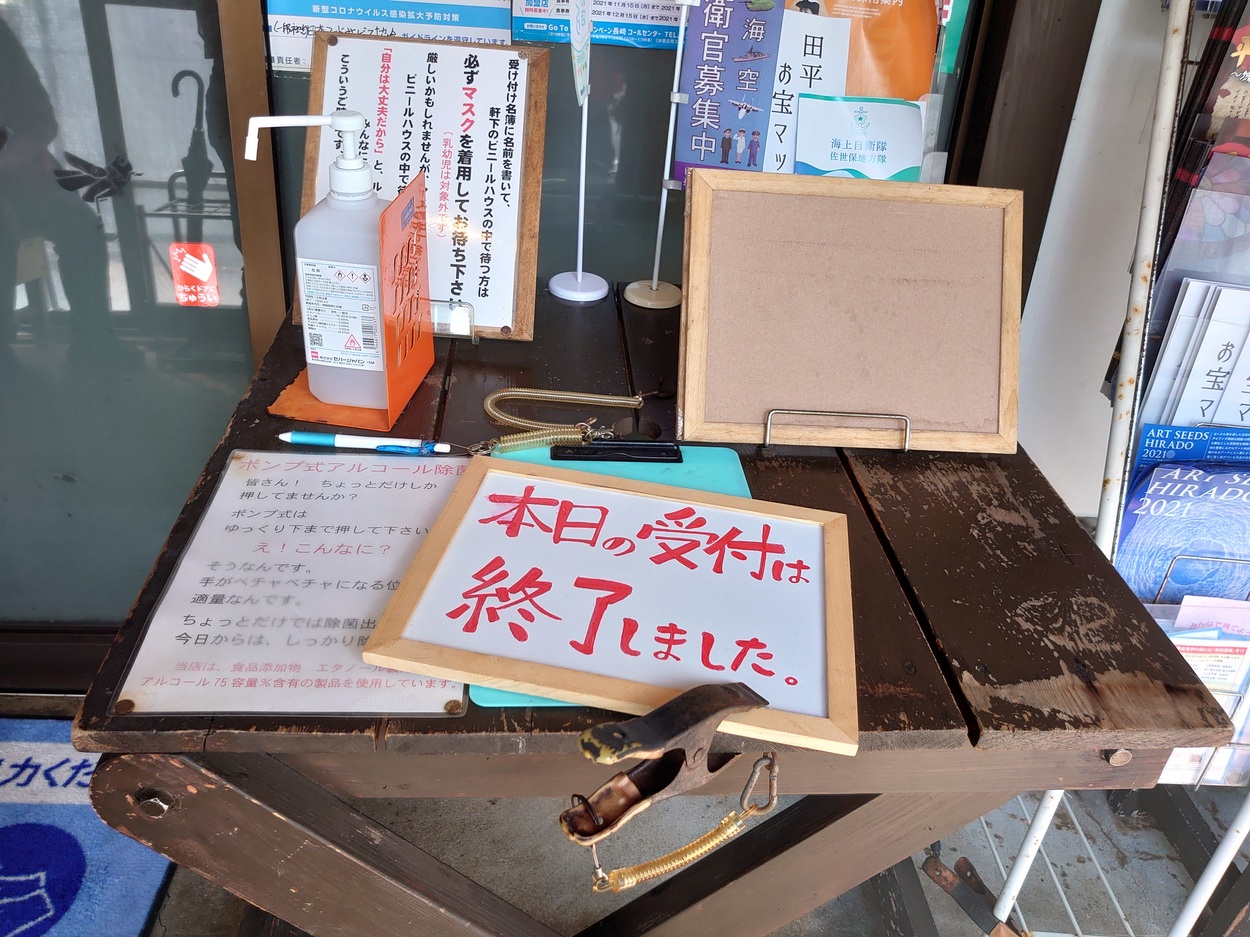 新型コロナウイルス感染拡大予防対策
ガイドラインを遵守しています
責任者:
加盟店
2021年11月15日(月)まで
2021年12月15日(水)まで
キャンペーン長崎 コールセンター TEL
受け付け名簿に名前を書いて、
軒下のビニールハウスの中で待つ方は
必ずマスクを着用してお待ち下さい
(乳幼児は対象外です)
厳しいかもしれませんが、
ビニールハウスの中で
「自分は大丈夫だから」と、
みんなに
こういうご時
です。
衛官募集中
海
空
田平
お宝マッ
海上自衛隊
佐世保地方隊
ひらくドアに
ちゅうい
ポンプ式アルコール除菌
皆さん! ちょっとだけしか
押してませんか?
ポンプ式は
ゆっくり下まで押して下さい
え!こんなに?
そうなんです。
手がベチャベチャになる位
適量なんです。
ちょっとだけでは除菌出
今日からは、しっかり除
当店は、食品添加物 エタノール
アルコール75容量%含有の製品を使用しています。
本日の受付は
終了しました。
お宝マ
ART SEEDS
HIRADO
2021
ART SEEDS
HIRADO
2021
力くだ